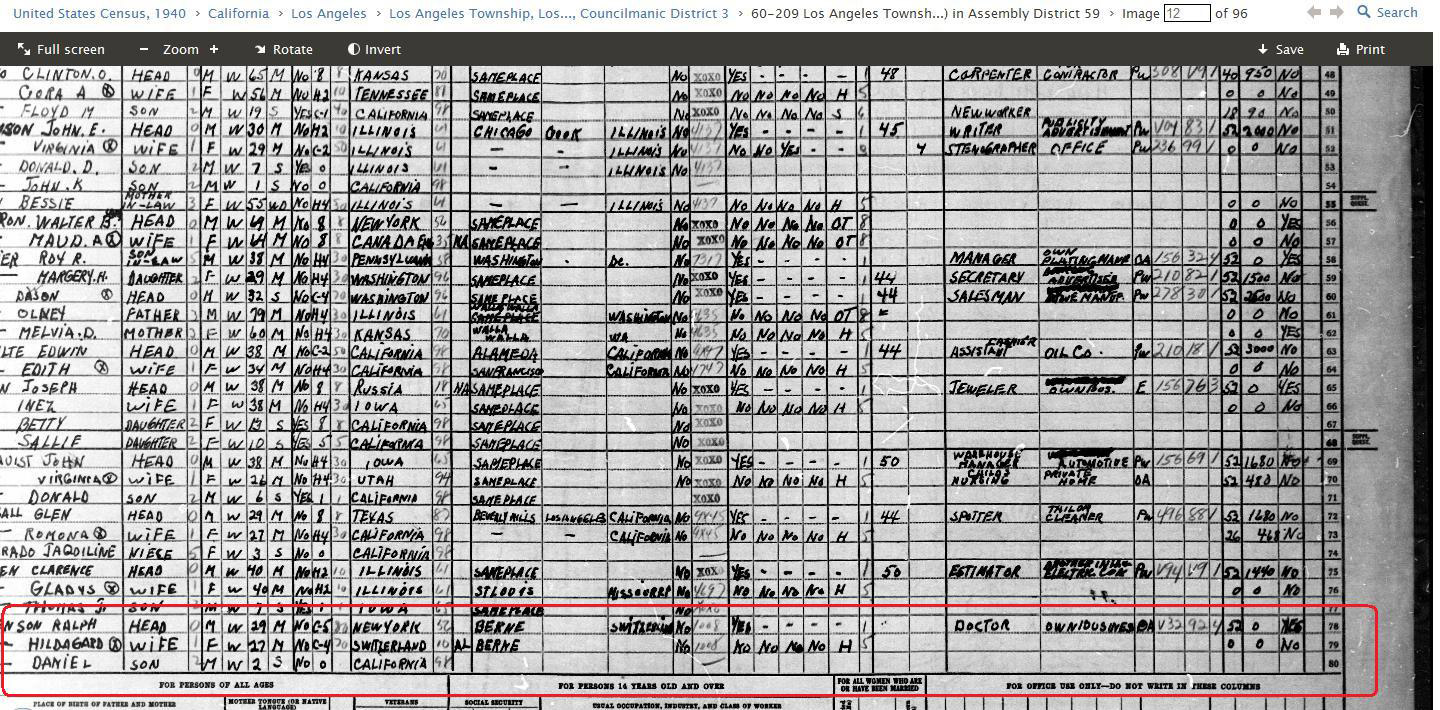 United States Census, 1940 › California › Los Angeles › Los Angeles Township, Los..., Councilmanic District 3 › 60-209 Los Angeles Townsh...) in Assembly District 59 › Image 12 of 96 Search
Full screen − Zoom + Rotate Invert Save Print
CLINTON.O. HEAD 0 M W 65 M No 8 8 KANSAS 70 SAMEPLACE No XOXO YES - - - - 1 48 CARPENTER CONTRACTOR PW 308 V91 40 950 No 48
CORA A WIFE 1 F W 56 M No H2 10 TENNESSEE 81 SAMEPLACE No XOXO No No No No H 5 0 0 No 49
FLOYD M SON 2 M W 19 S YES CALIFORNIA 98 SAMEPLACE No XOXO No No No No S 6 NEWWORKER 18 90 No 50
SON JOHN.E. HEAD 0 M W 30 M No H2 10 ILLINOIS 61 CHICAGO COOK ILLINOIS No YES - - - - 1 45 WRITER PUBLICITY ADVERTISEMENT PW V04 831 52 2000 No 51
VIRGINIA WIFE 1 F W 29 M No C-2 50 ILLINOIS 61 — — ILLINOIS No No No YES - - 4 STENOGRAPHER OFFICE PW 236 991 52 0 No 52
DONALD.D. SON 2 M W 7 S YES 0 ILLINOIS 61 — — ILLINOIS No 53
JOHN.K SON 2 M W 1 S No 0 CALIFORNIA 98 54
BESSIE MOTHER IN-LAW 3 F W 55 WD No H4 30 ILLINOIS 61 — — ILLINOIS No No No No No H 5 0 0 No 55 SUPPL. QUEST.
RON. WALTER B. HEAD 0 M W 69 M No 8 8 NEWYORK 56 SAMEPLACE No XOXO No No No No OT 8 0 0 YES 56
MAUD.A WIFE 1 F W 64 M No 8 8 CANADA SAMEPLACE No XOXO No No No No OT 8 0 0 No 57
ER ROY R. SON IN-LAW M W 38 M No H4 30 PENNSYLVANIA 58 WASHINGTON D.C. No YES - - - - 1 MANAGER OWN OA 156 52 0 YES 58
MARGERY.H. DAUGHTER 2 F W 29 M No H4 30 WASHINGTON 96 SAMEPLACE No XOXO YES - - - - 1 44 SECRETARY ADVERTISER PW 210 821 52 1500 No 59
DASON HEAD 0 M W 32 S No C-4 70 WASHINGTON 96 SAME PLACE No XOXO YES - - - - 1 44 SALESMAN PW 278 301 52 No 60
OLNEY FATHER 3 M W 79 M No H4 30 ILLINOIS 61 WALLA WALLA WASHINGTON No No No No No OT 8 0 0 No 61
MELVIA.D. MOTHER 3 F W 60 M No H4 30 KANSAS 70 WALLA WALLA WA. No No No No No H 5 0 0 YES 62
LTE EDWIN HEAD 0 M W 38 M No C-2 50 CALIFORNIA 98 ALAMEDA CALIFORNIA No YES - - - - 1 44 ASSISTANT CASHIER OIL CO. PW 210 181 52 3000 No 63
EDITH WIFE 1 F W 34 M No H4 30 CALIFORNIA 98 SANFRANCISCO CALIFORNIA No No No No No H 5 0 0 No 64
N JOSEPH HEAD 0 M W 38 M No 8 8 RUSSIA 18 NA SAMEPLACE No XOXO YES - - - - 1 JEWELER OWN BUS. E 156 763 52 0 YES 65
INEZ WIFE 1 F W 38 M No H4 30 IOWA 65 SAMEPLACE No XOXO No No No No H 5 0 0 No 66
BETTY DAUGHTER 2 F W 13 S YES 8 8 CALIFORNIA 98 SAMEPLACE No XOXO 67
SALLIE DAUGHTER 2 F W 10 S YES 5 5 CALIFORNIA 98 SAMEPLACE No XOXO 68 SUPPL. QUEST.
UIST JOHN HEAD 0 M W 38 M No H4 30 IOWA 65 SAMEPLACE No XOXO YES - - - - 1 50 WAREHOUSE MANAGER AUTOMOTIVE PW 156 691 52 1680 No 69
VIRGINIA WIFE 1 F W 26 M No H4 30 UTAH 94 SAMEPLACE No XOXO No No No No H 5 CHILDS NURSING PRIVATE HOME OA 52 480 No 70
DONALD SON 2 M W 6 S YES 1 1 CALIFORNIA 98 SAMEPLACE XOXO 71
ALL GLEN HEAD 0 M W 29 M No 8 8 TEXAS 87 BEVERLY HILLS LOSANGELES CALIFORNIA No YES - - - - 1 44 SPOTTER TAILOR CLEANER PW 496 881 52 1680 No 72
ROMONA WIFE 1 F W 27 M No H4 30 CALIFORNIA 98 — — CALIFORNIA No No No No No H 5 26 468 No 73
RADO JAQOILINE NIESE 5 F W 3 S No 0 CALIFORNIA 98 74
EN CLARENCE HEAD 0 M W 40 M No H2 10 ILLINOIS 61 SAMEPLACE No XOXO YES - - - - 1 50 ESTIMATOR ELECTRIC COM PW V94 V91 52 1440 No 75
GLADYS WIFE 1 F W 40 M No H2 10 ILLINOIS 61 ST LOUIS MISSOURRI No No No No No H 5 0 0 No 76
THOMAS SON 2 M W 7 S YES 1 IOWA SAMEPLACE No 77
NSON RALPH HEAD 0 M W 29 M No C-5 80 NEWYORK 56 BERNE SWITZERLAND No YES - - - - 1 DOCTOR OWN BUSINESS OA V32 924 52 0 YES 78
HILDAGARD WIFE 1 F W 27 M No C-4 70 SWITZERLAND 10 AL BERNE No No No No No H 5 0 0 No 79
DANIEL SON 2 M W 2 S No 0 CALIFORNIA 98 80
FOR PERSONS OF ALL AGES FOR PERSONS 14 YEARS OLD AND OVER FOR ALL WOMEN WHO ARE OR HAVE BEEN MARRIED FOR OFFICE USE ONLY—DO NOT WRITE IN THESE COLUMNS
PLACE OF BIRTH OF FATHER AND MOTHER MOTHER TONGUE (OR NATIVE LANGUAGE) VETERANS SOCIAL SECURITY USUAL OCCUPATION, INDUSTRY, AND CLASS OF WORKER